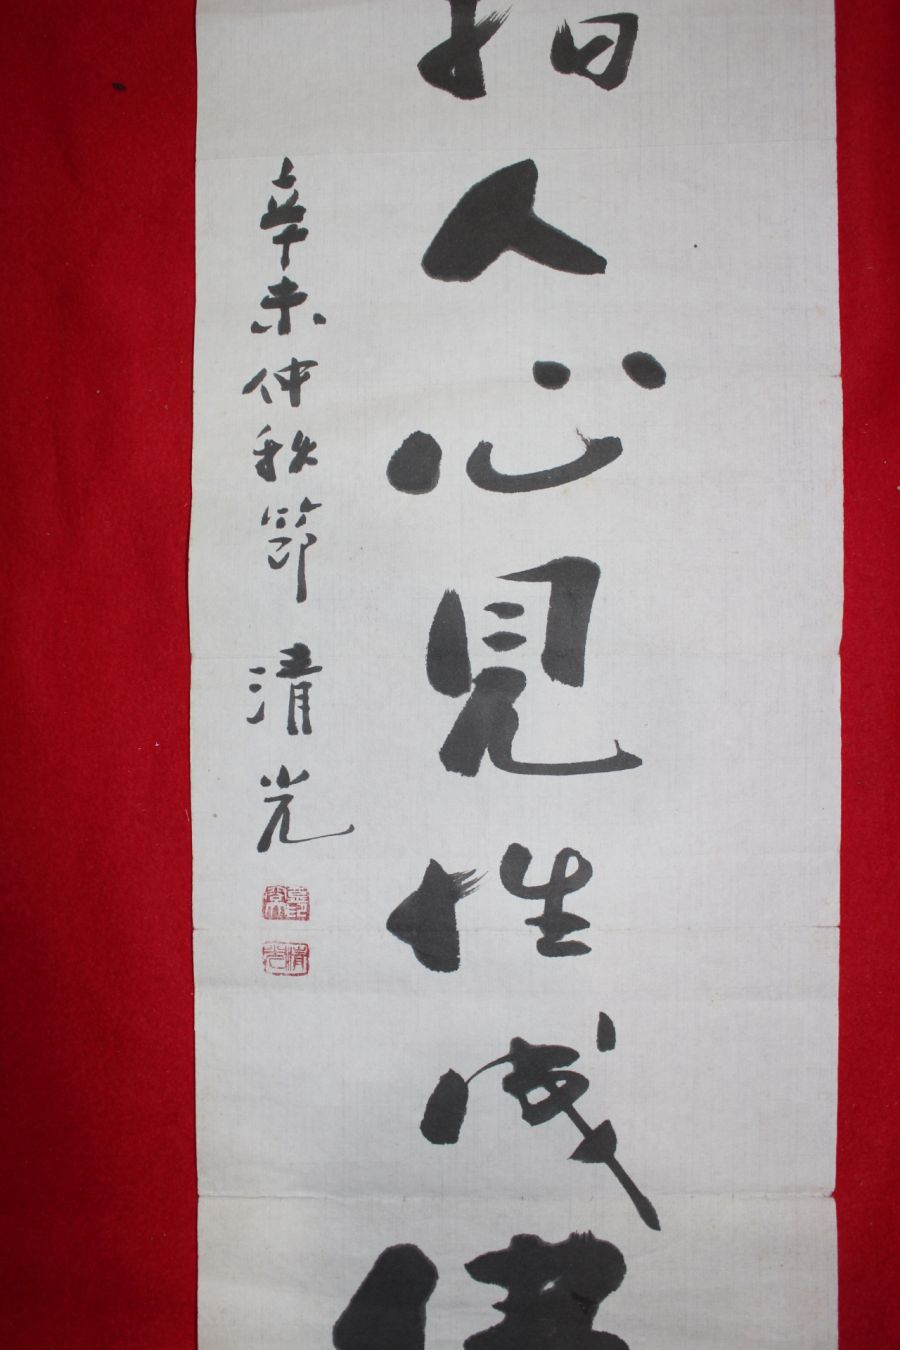 指人心見性成佛
辛未仲秋節 清光
清光